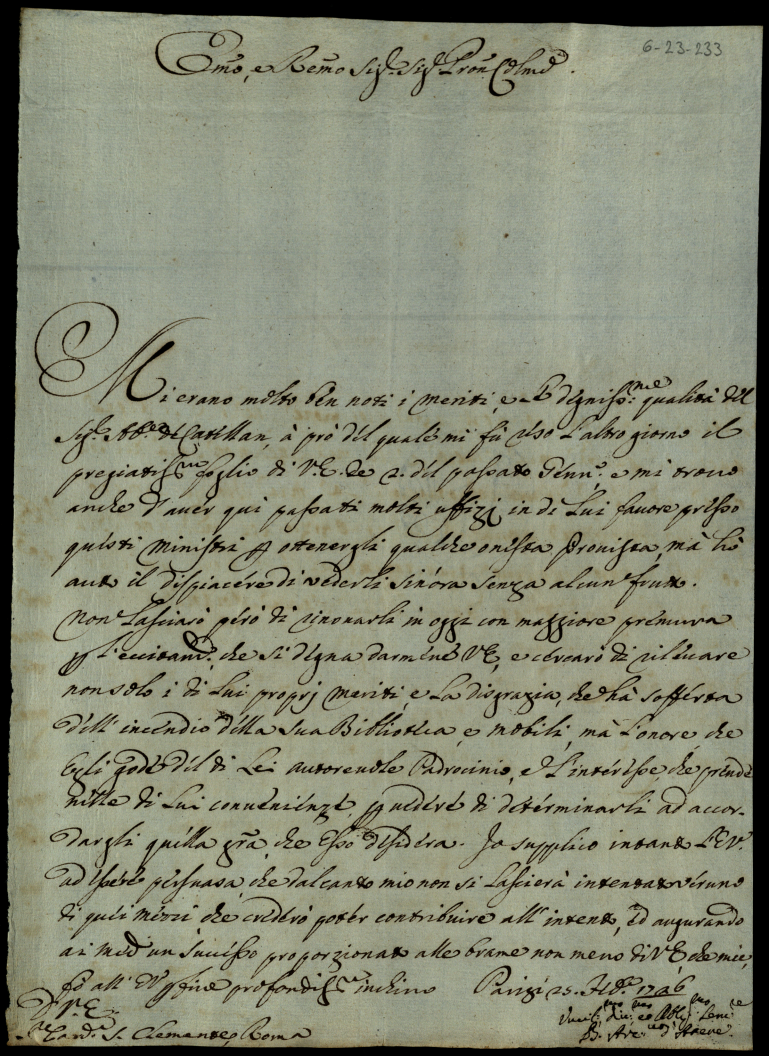 6-23-233
Emo, e Remo Sigr. Sigr. Pron Colmo.
Mi erano molto ben noti i meriti, e le dignissme. qualità del
Sigr. Abe. de Catellan, à prò del quale mi fù reso l'altro giorno il
pregiatismo. foglio di V. E. de 2. del passato Genno. e mi trovo
anche d'aver qui passati molti uffizj in di Lui favore presso
questi Ministri p ottenergli qualche onesta Provista, mà hò
auto il dispiacere di vederli sinora senza alcun frutto.
Non lasciarò però di rinovarli in oggi con maggiore premura
p l'eccitamto. che si degna darmene V. E., e cercarò di rilevare
non solo i di Lui proprj meriti, e la disgrazia, che hà sofferta
dell' incendio della sua Biblioteca, e mobili, mà l'onore che
Egli gode del di Lei autorevole Padrocinio, e l'interesse che prende
nelle di Lui convenienze, p vedere di determinarli ad accor-
dargli quella gra, che Esso desidera. Io supplico intanto l'E. V.
ad essere persuasa, che dal canto mio non si lascierà intentato veruno
di quei mezzi che crederò poter contribuire all' intento, ed augurando
ai med un successo proporzionato alle brame non meno di V. E. che mie,
fò all' E. V. p fine profondismo. inchino Parigi 25. Febo. 1726
D. V. E.
Sr. Card. S. Clemente, Roma
Umilmo. divmo. ed Obligmo. Servre
B. Arcivo. d'